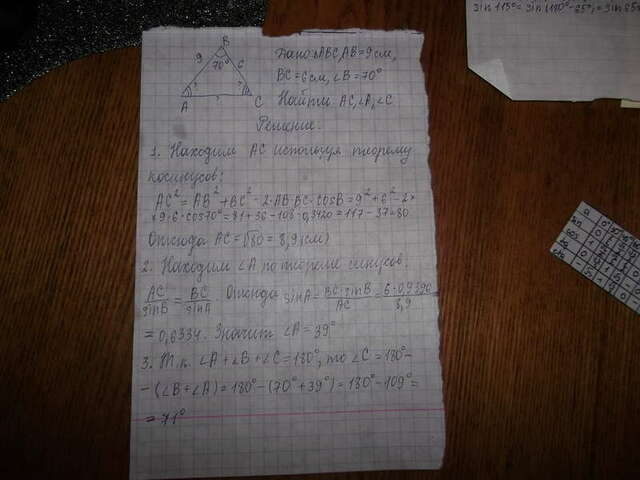 B
9 70° 6
A C
Дано: ΔABC, AB=9см,
BC=6см, ∠B=70°
Найти AC, ∠A, ∠C
Решение.
1. Находим AC используя теорему
косинусов:
AC²=AB²+BC²-2·AB·BC·cosB=9²+6²-2×
×9·6·cos70°=81+36-108·0,3420=117-37=80
Отсюда AC=√80=8,9(см)
2. Находим ∠A по теореме синусов:
AC/sinB=BC/sinA. Отсюда sinA=BC·sinB/AC=6·0,9390/8,9
=0,6334. Значит ∠A=39°
3. Т.к. ∠A+∠B+∠C=180°, то ∠C=180°-
-(∠B+∠A)=180°-(70°+39°)=180°-109°=
=71°
sin115°=sin(180°-65°)=sin65°